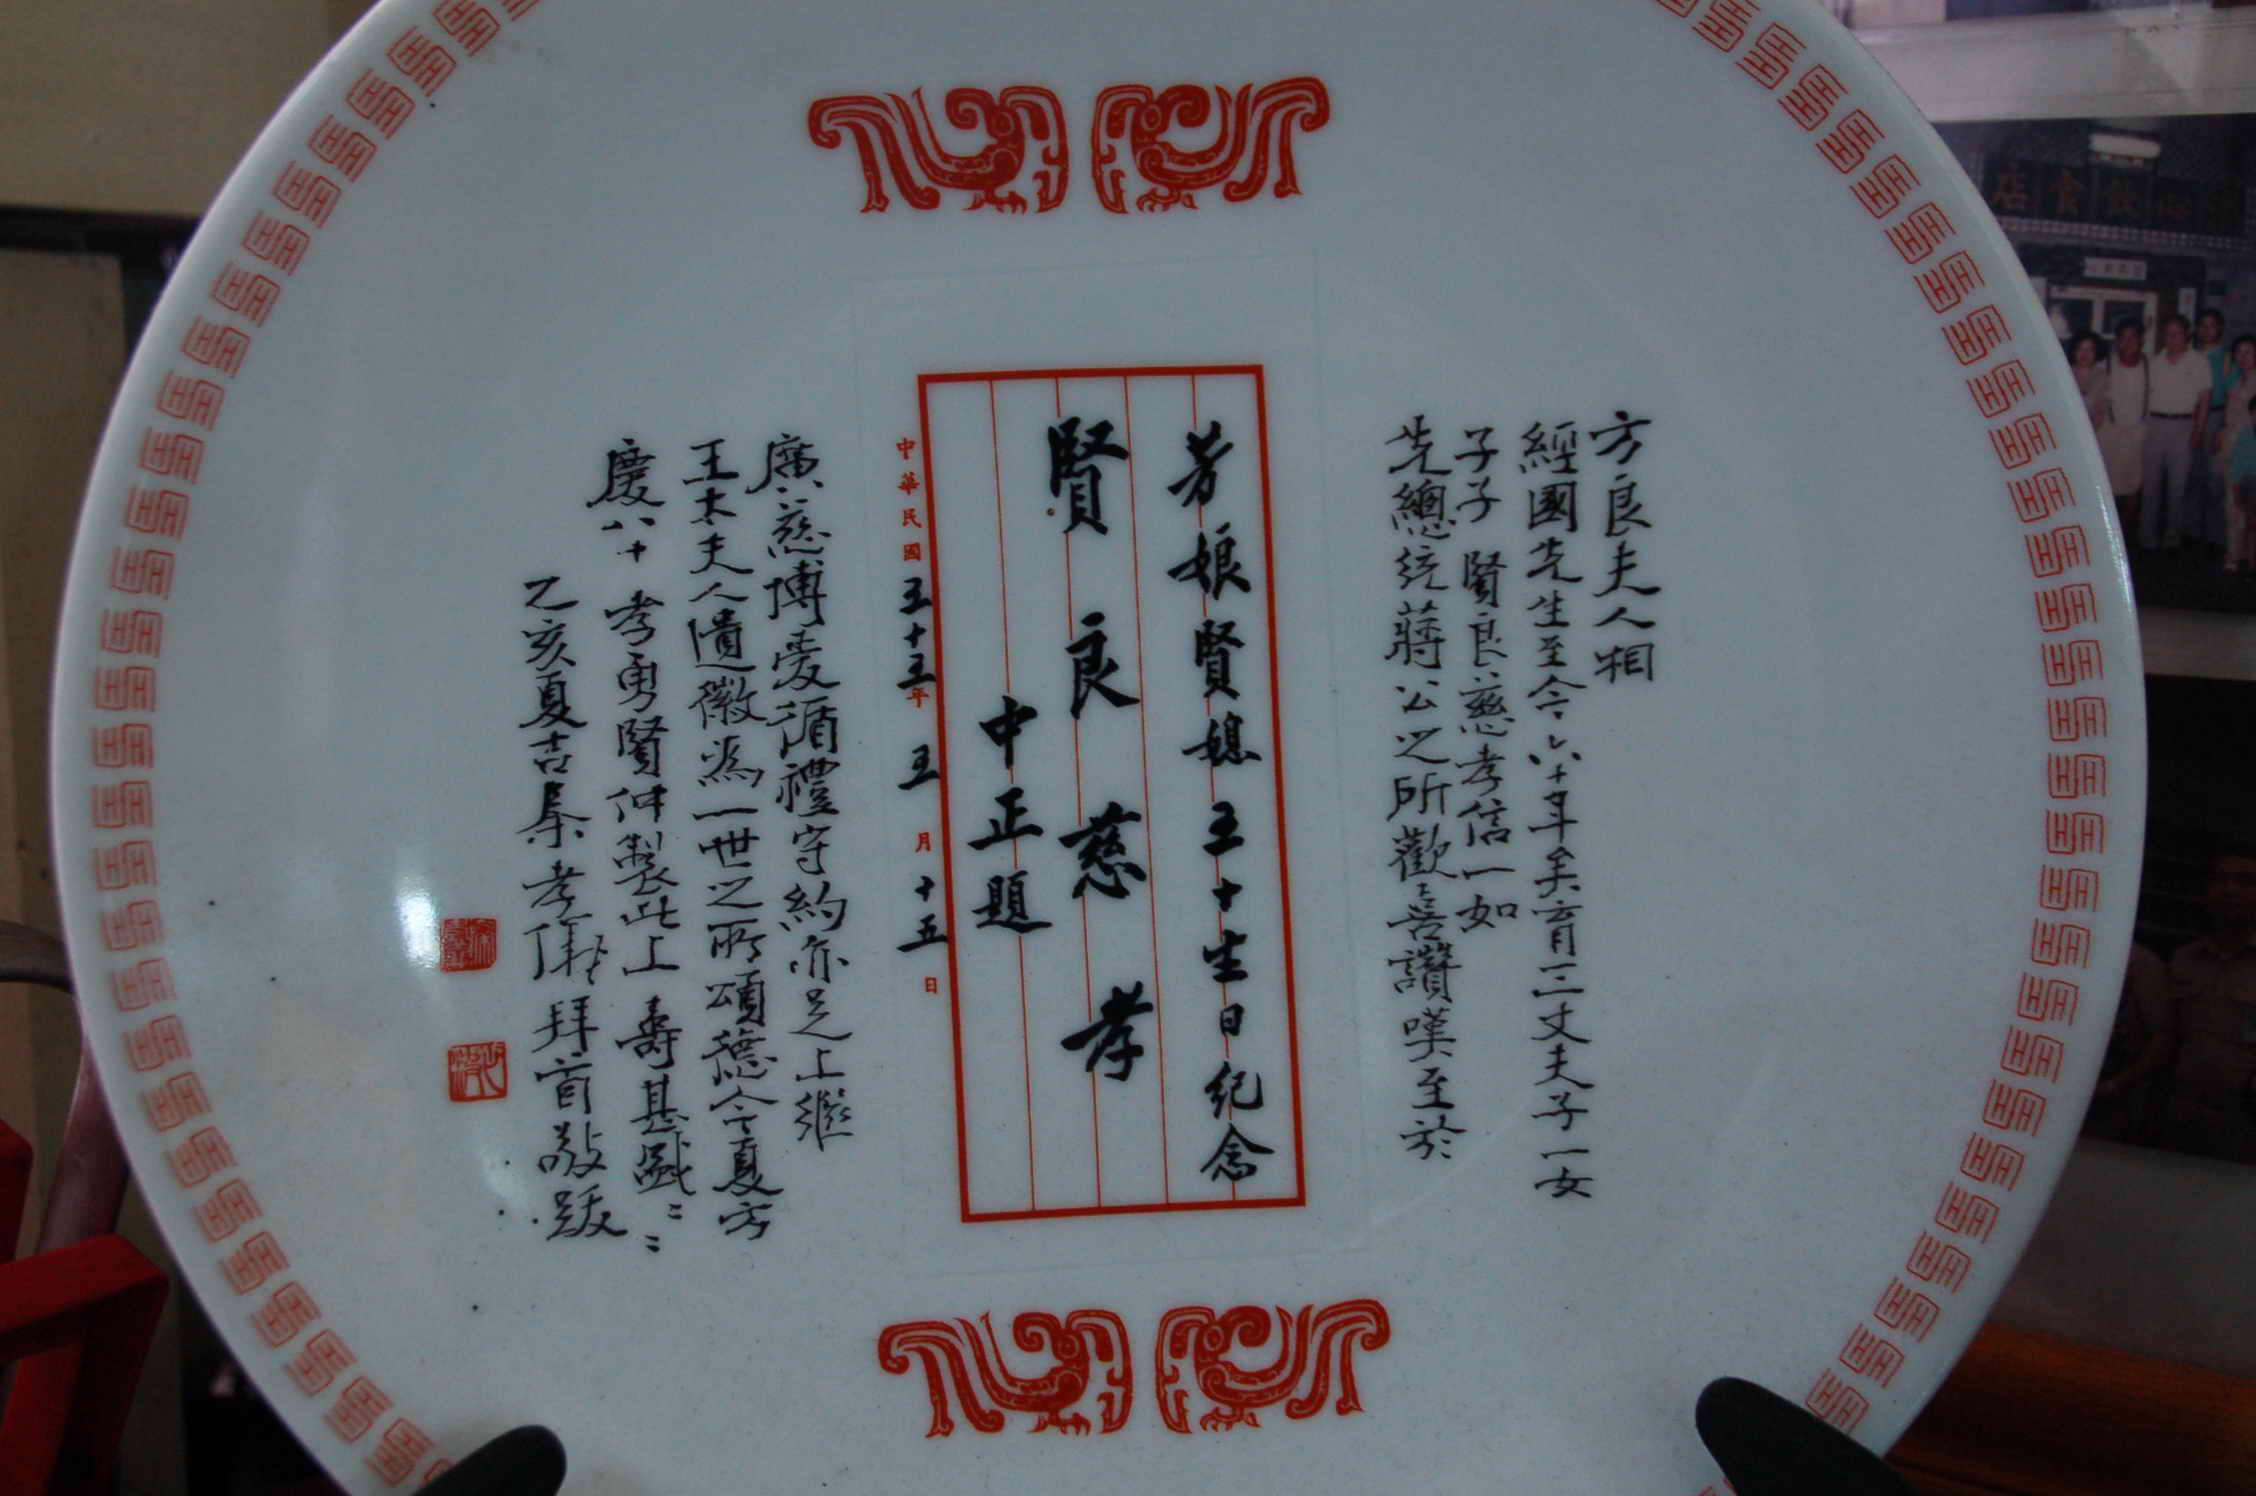 方良夫人相
經國先生至今六十年矣育三丈夫子一女
子子賢良慈孝信一如
先總統蔣公之所歡喜讚嘆至於
芳娘賢媳五十生日紀念
賢良慈孝
中正題
中華民國五十五年五月十五日
廣慈博愛循禮守約亦足上繼
王太夫人遺徽為一世之所頌德今夏方
慶八十孝勇賢仲製此上壽甚盛甚盛
乙亥夏吉秦孝儀拜首敬跋
飲食店